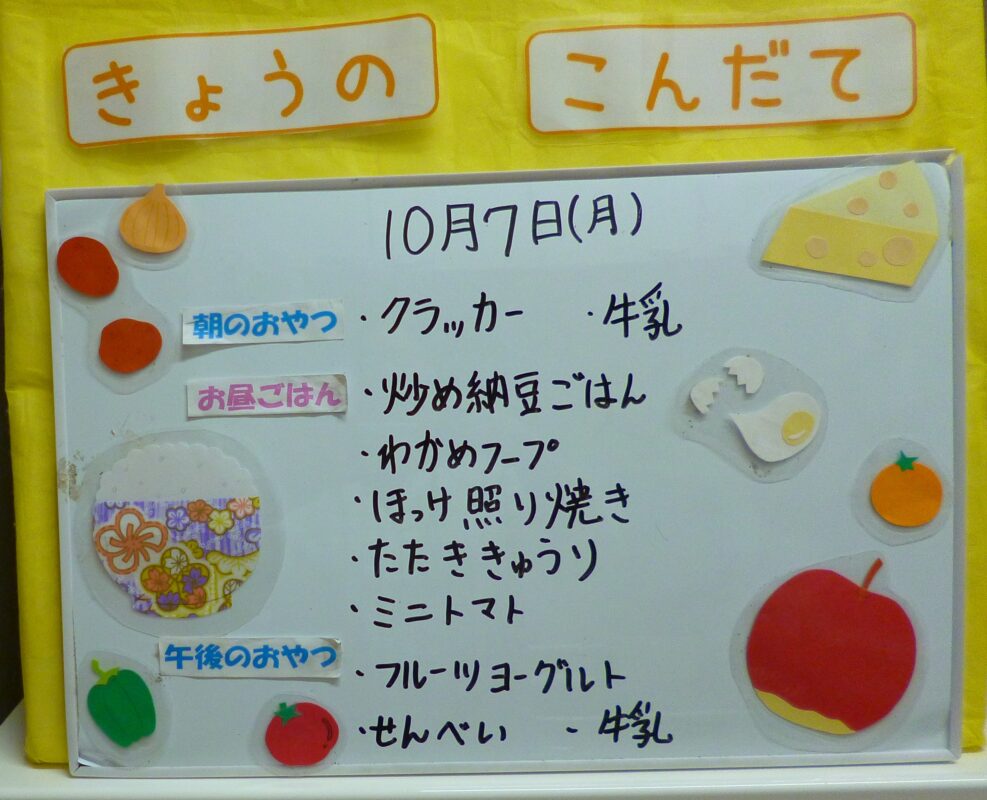 きょうの こんだて
10月7日(月)
朝のおやつ ・クラッカー ・牛乳
お昼ごはん ・炒め納豆ごはん
・わかめフープ
・ほっけ照り焼き
・たたききゅうり
・ミニトマト
午後のおやつ ・フルーツヨーグルト
・せんべい ・牛乳